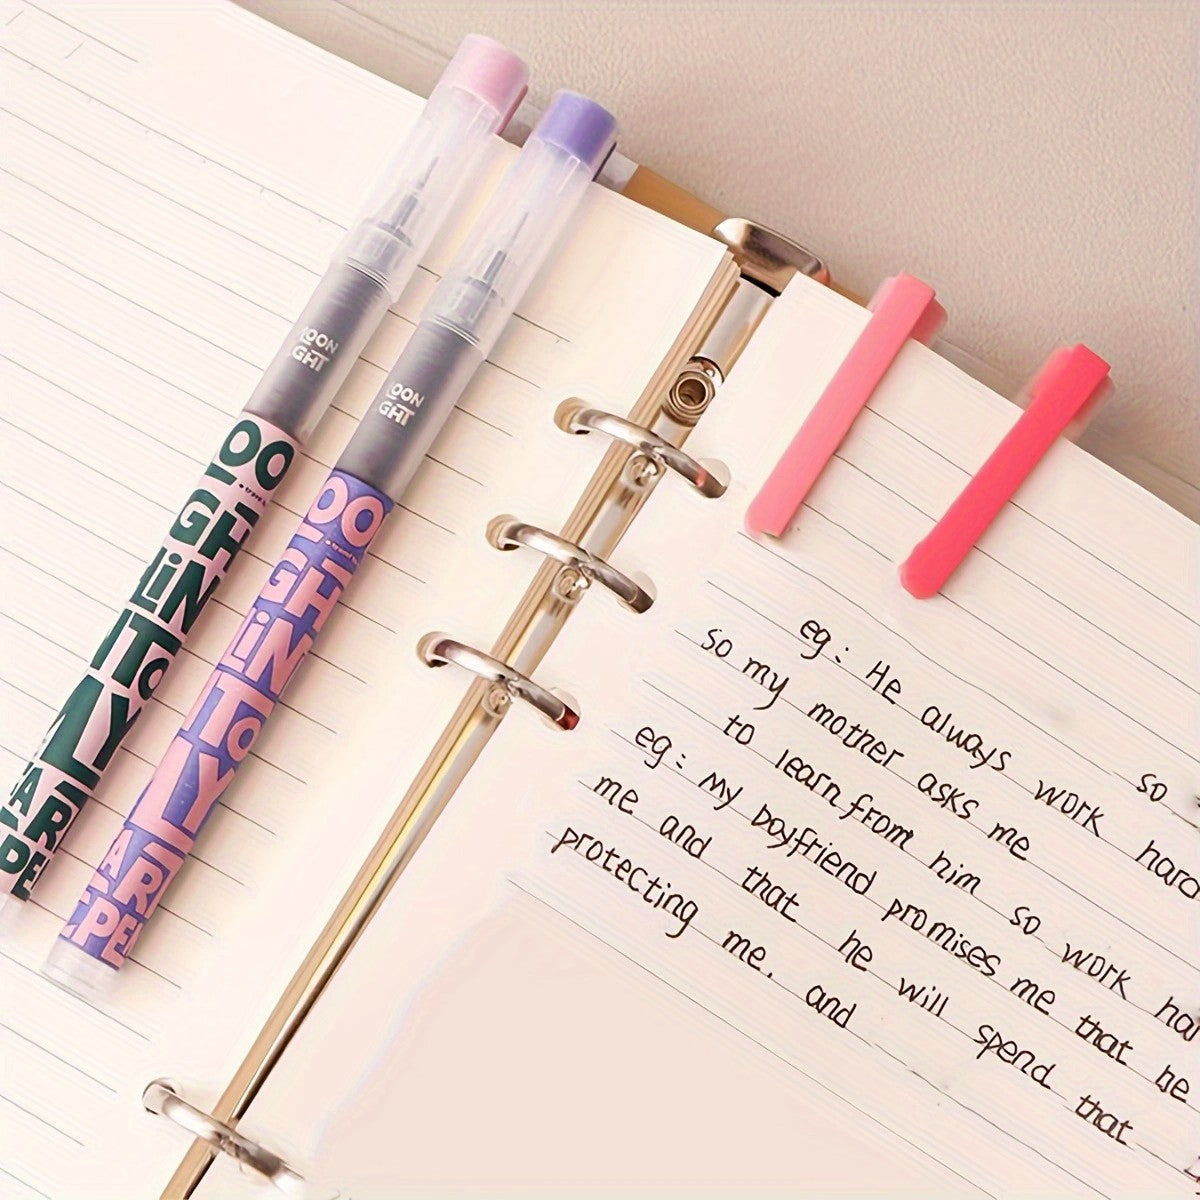 OON
GHT
OON
GHT
OO
GH
LiN
TO
LY
AR
PE
OO
GH
LiN
TO
LY
AR
EPE
eg: He always work hard
so
so my mother asks me
to learn from him so work har
eg: My boyfriend promises me that he
me and that he will spend that
protecting me. and